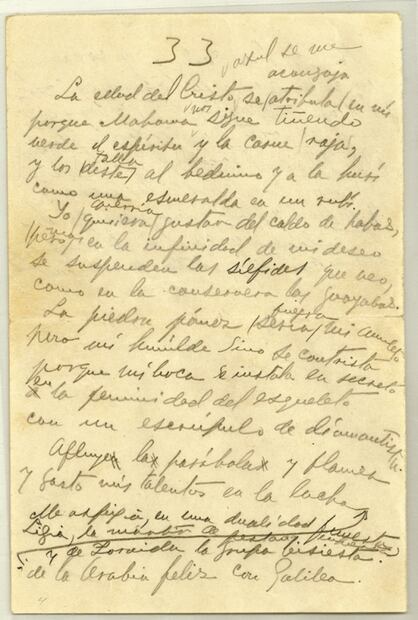 33
azul se me
acongoja
La edad del Cristo se (atribula) en mí
porque Mahoma me sigue tiñendo
verde el espíritu y la carne roja,
talla
y los (deste) al beduino y a la hurí
como una esmeralda en un rubí.
querría
Yo (quisiera) gustar del caldo de habas,
(pero) en la infinidad de mi deseo
se suspenden las sílfides que veo,
como en la conservera las guayabas.
fuera
La piedra pómez (sería) mi amuleto
pero mi humilde sino se contrista
porque mi boca se instala en secreto
en la feminidad del esqueleto
con un escrúpulo de diamantista.
Afluye la parábola y flamea
y gasto mis talentos en la lucha
Me asfixia en una dualidad funesta
Ligia, la mártir de pestaña enhiesta
y de Zoraida la grupa bisiesta.
de la Arabia feliz con Galilea.